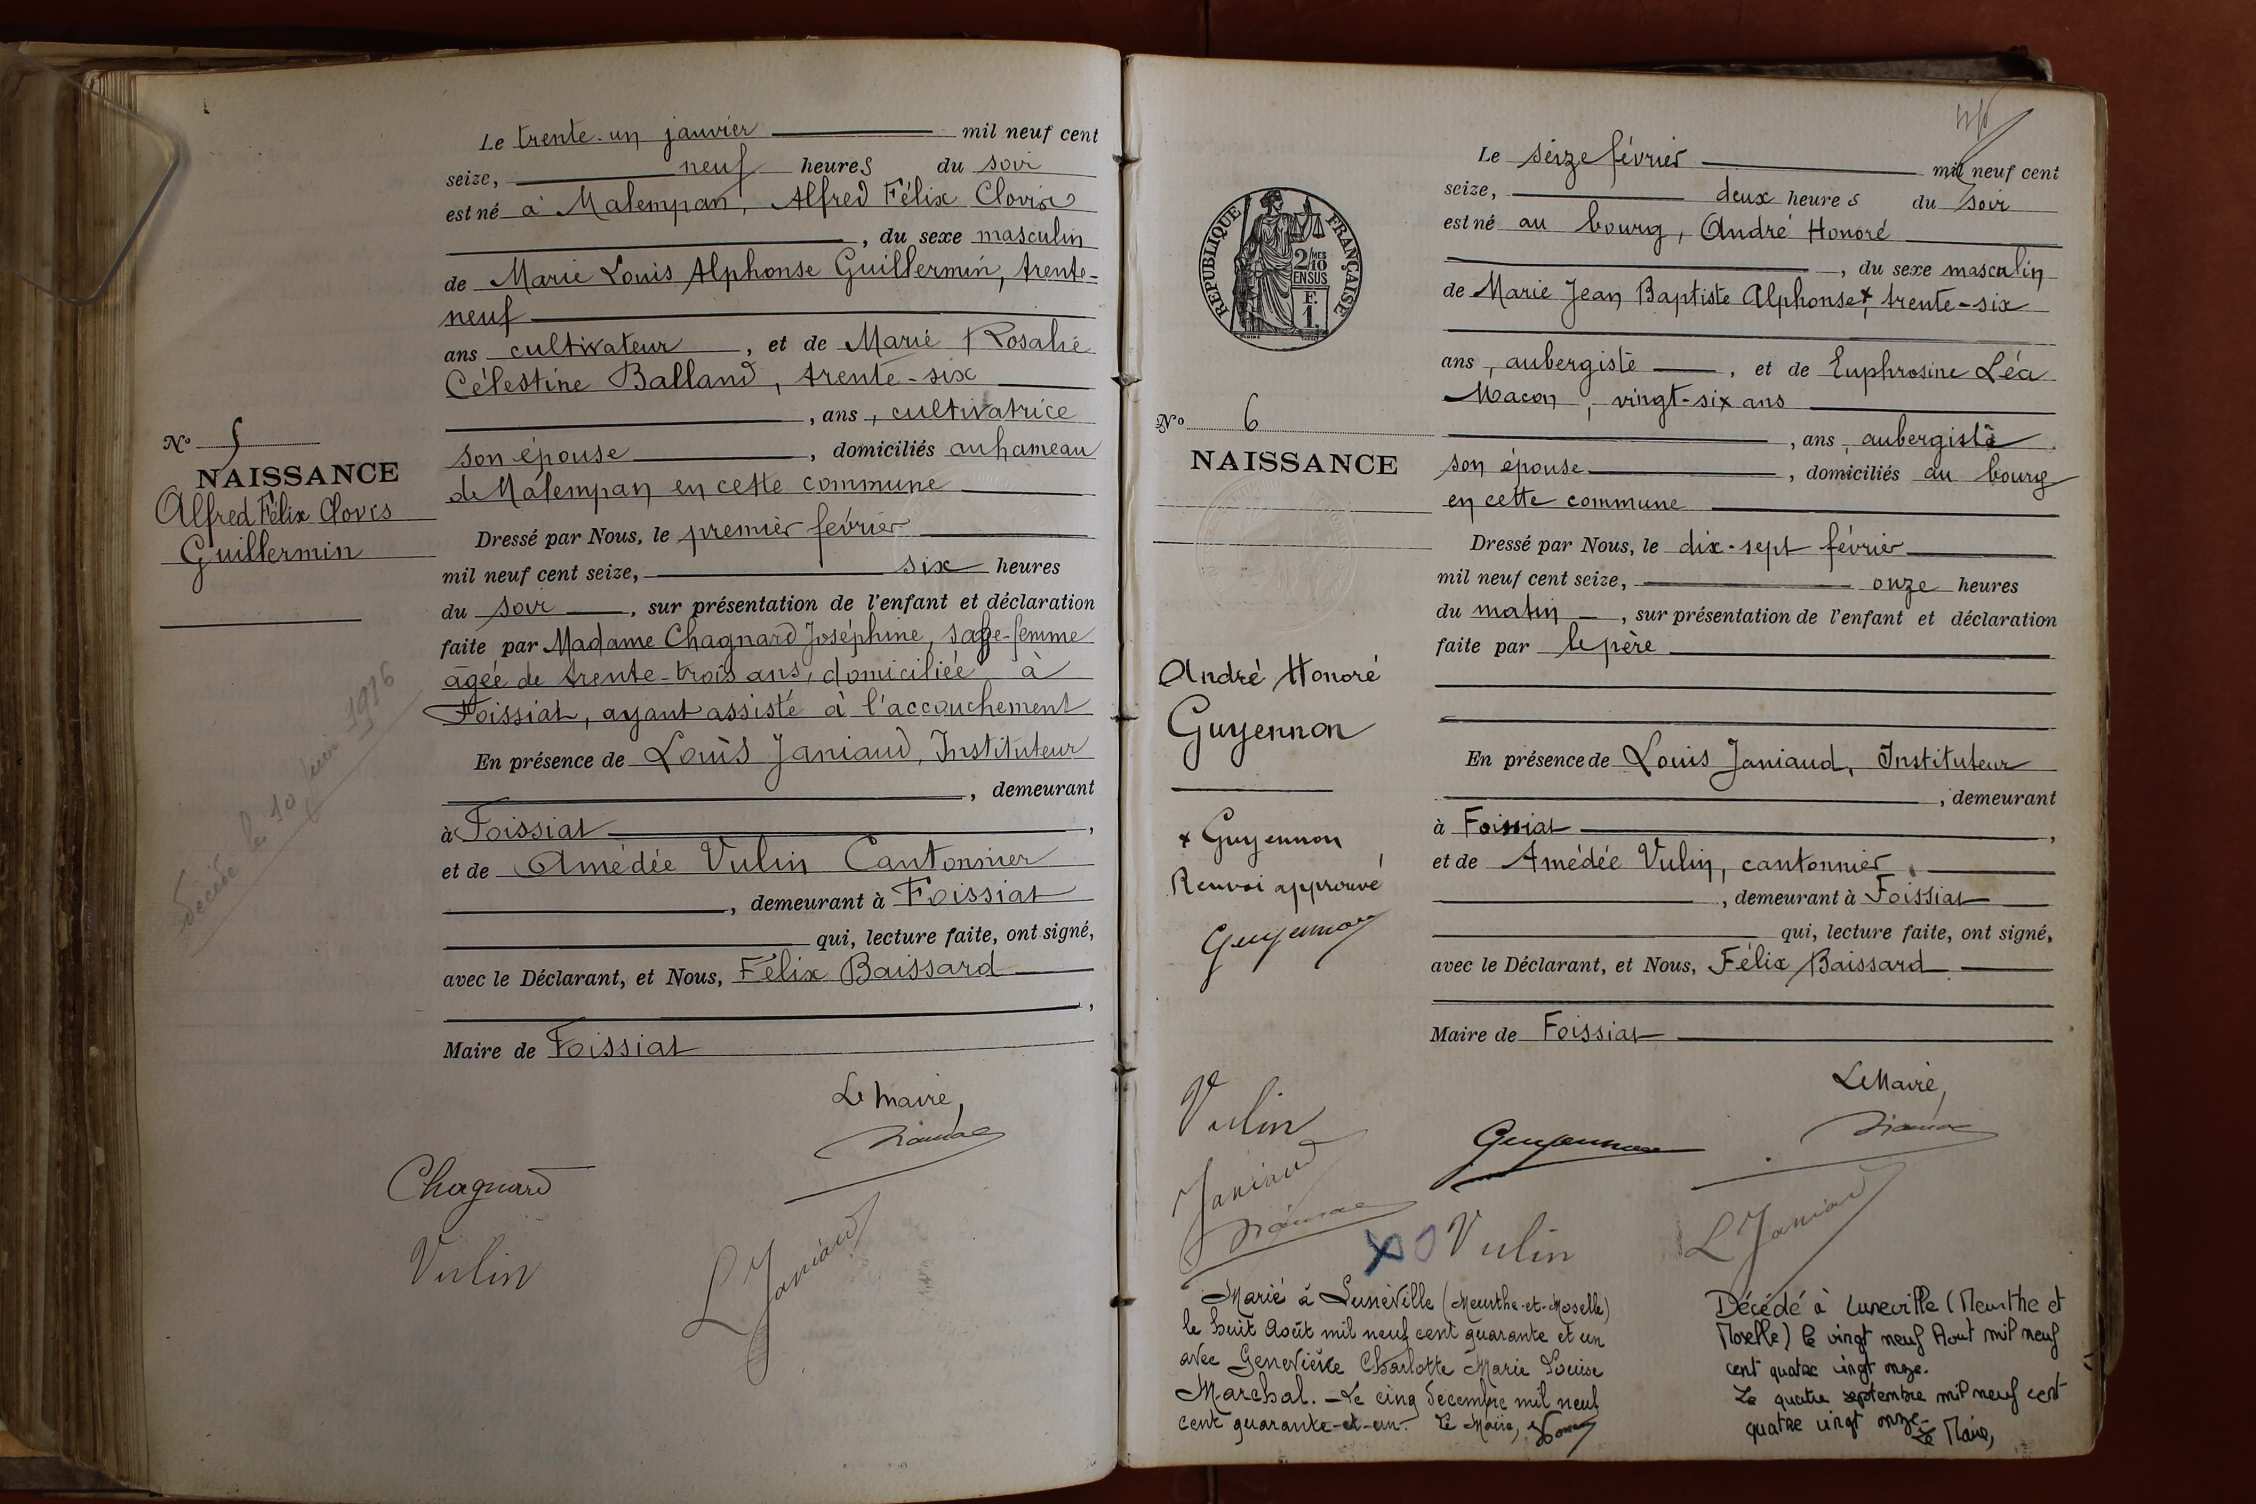 Le trente-un janvier mil neuf cent
seize, neuf heures du soir
est né à Malempan, Alfred Félix Clovis
, du sexe masculin
de Marie Louis Alphonse Guillermin, trente-
neuf
ans cultivateur, et de Marie Rosalie
Célestine Balland, trente-six
, ans, cultivatrice
son épouse, domiciliés au hameau
de Malempan en cette commune
Dressé par Nous, le premier février
mil neuf cent seize, six heures
du soir, sur présentation de l'enfant et déclaration
faite par Madame Chagnard Joséphine, sage-femme
âgée de trente-trois ans, domiciliée à
Foissiat, ayant assisté à l'accouchement
En présence de Louis Janiaud, Instituteur
, demeurant
à Foissiat,
et de Amédée Vulin Cantonnier
, demeurant à Foissiat
qui, lecture faite, ont signé,
avec le Déclarant, et Nous, Félix Baissard
,
Maire de Foissiat
Le maire,
Chagnard
Vulin
L Janiaud
No 5
NAISSANCE
Alfred Félix Clovis
Guillermin
décédé le 10 1916
Le seize février mil neuf cent
seize, deux heures du soir
est né au bourg, André Honoré
, du sexe masculin
de Marie Jean Baptiste Alphonse x, trente-six
ans, aubergiste, et de Euphrosine Léa
Macon, vingt-six ans
, ans, aubergiste
son épouse, domiciliés au bourg
en cette commune
Dressé par Nous, le dix-sept février
mil neuf cent seize, onze heures
du matin, sur présentation de l'enfant et déclaration
faite par le père
En présence de Louis Janiaud, Instituteur
, demeurant
à Foissiat,
et de Amédée Vulin, cantonnier
, demeurant à Foissiat
qui, lecture faite, ont signé,
avec le Déclarant, et Nous, Félix Baissard
Maire de Foissiat
Le Maire,
RÉPUBLIQUE FRANÇAISE
2/10MES
EN SUS
F.
1.
No 6
NAISSANCE
André Honoré
Guyennon
x Guyennon
Renvoi approuvé
Guyennon
Vulin
Janiaud
Guyennon
Vulin
L Janiaud
Marié à Lunéville (Meurthe-et-Moselle)
le huit Août mil neuf cent quarante et un
avec Geneviève Charlotte Marie Louise
Marchal. - Le cinq décembre mil neuf
cent quarante-et-un. Le Maire,
Décédé à Luneville (Meurthe et
Moselle) le vingt neuf Aout mil neuf
cent quatre vingt onze.
Le quatre septembre mil neuf cent
quatre vingt onze-
Le Maire,